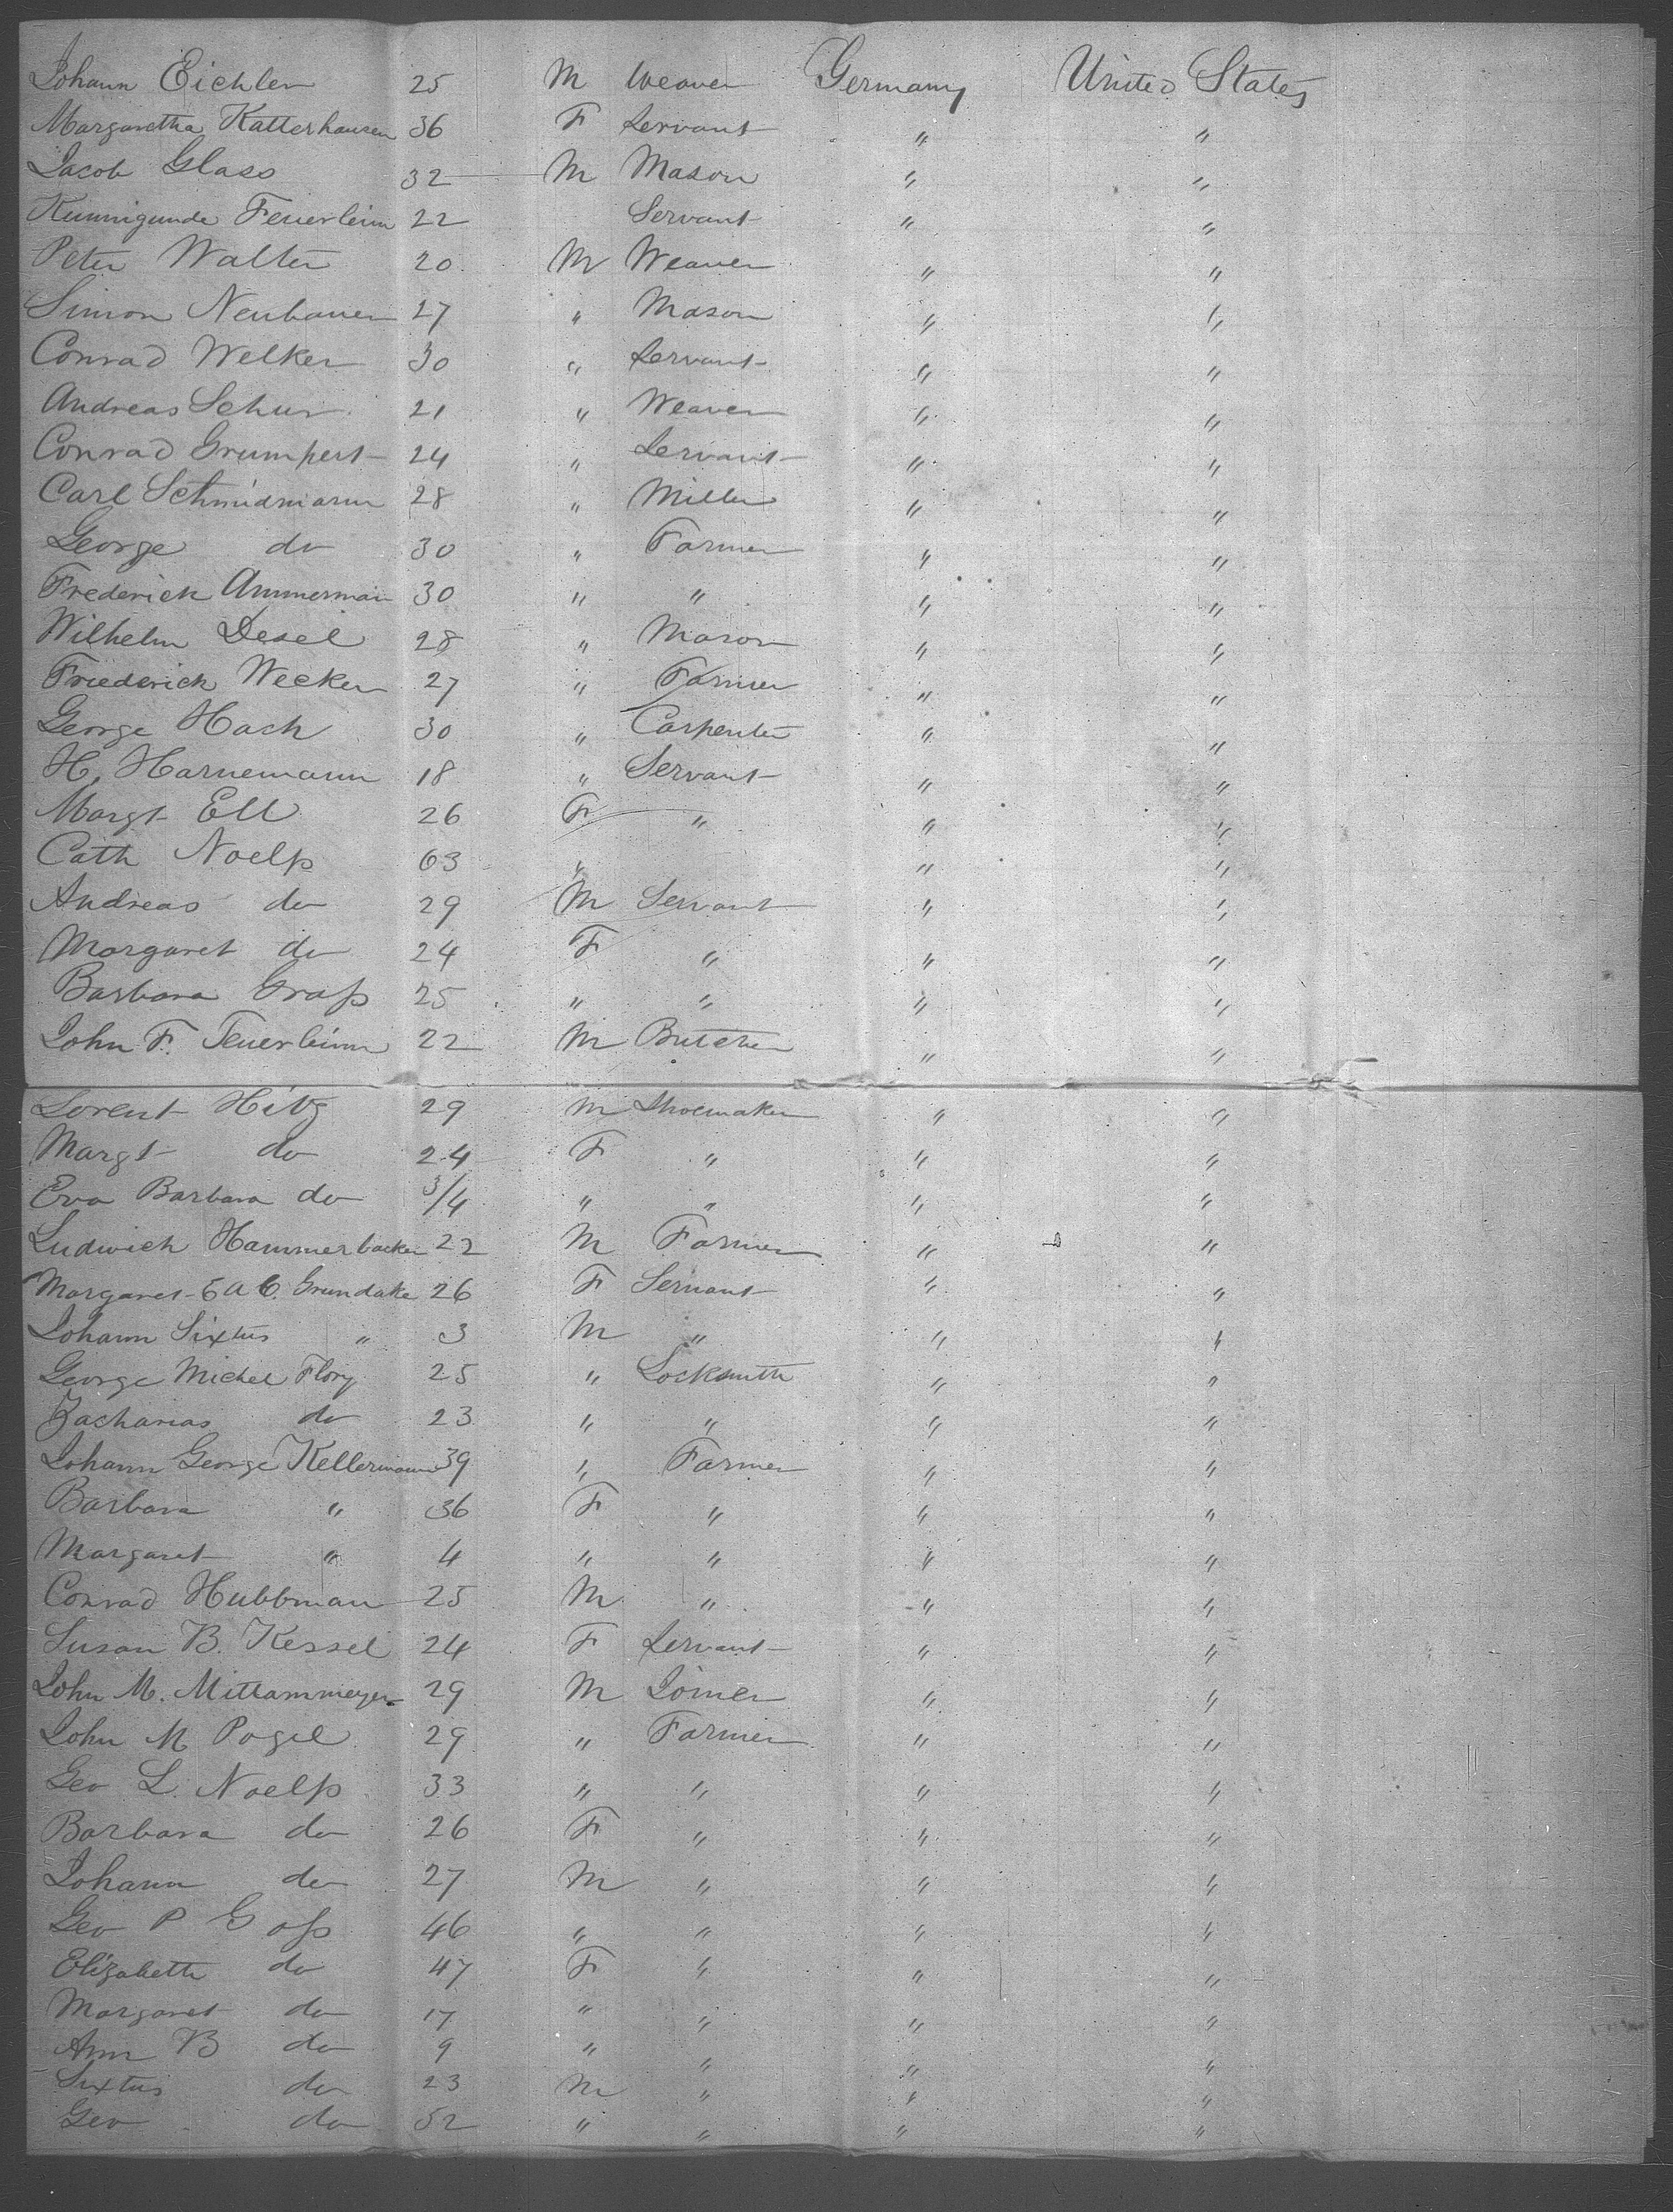 Johann Eichler 25 M Weaver Germany United States
Margaretha Katterhausen 36 F Servant " "
Jacob Glass 32 M Mason " "
Kunnigunde Feuerleinn 22 Servant " "
Peter Walter 20 M Weaver " "
Simon Neubauer 27 " Mason " "
Conrad Welker 30 " Servant " "
Andreas Schur 21 " Weaver " "
Conrad Grumpert 24 " Servant " "
Carl Schmidmann 28 " Miller " "
George do 30 " Farmer " "
Frederick Ammerman 30 " " " "
Wilhelm Desel 28 " Mason " "
Friederick Wecker 27 " Farmer " "
George Hach 30 " Carpenter " "
H. Harnemann 18 " Servant " "
Margt Ell 26 F " " "
Cath Noelß 63 " " "
Andreas do 29 M Servant " "
Margaret do 24 F " " "
Barbara Graß 25 " " " "
John F. Feuerleinn 22 M Butcher " "
Lorent Hitz 29 M Shoemaker " "
Margt do 24 F " " "
Eva Barbara do 3/4 " " " "
Ludwich Hammerbacker 22 M Farmer " "
Margaret E A C. Grundake 26 F Servant " "
Johann Sixtus " 3 M " " "
George Michel Flory 25 " Locksmith " "
Zacharias do 23 " " " "
Johann George Kellermann 39 " Farmer " "
Barbara " 36 F " " "
Margaret " 4 " " " "
Conrad Hubbman 25 M " " "
Susan B. Kessel 24 F Servant " "
John M. Mittammeyer 29 M Joiner " "
John M Pogel 29 " Farmer " "
Geo L. Noelß 33 " " " "
Barbara do 26 F " " "
Johann do 27 M " " "
Geo P Goß 46 " " " "
Elizabeth do 47 F " " "
Margaret do 17 " " " "
Ann B do 9 " " " "
Sixtus do 23 M " " "
Geo do 52 " " " "